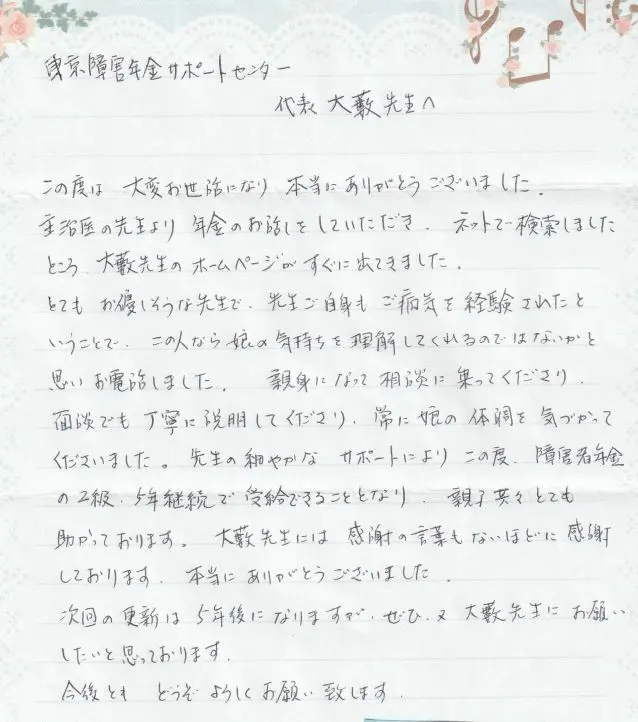 東京障害年金サポートセンター
代表 大藪先生へ
この度は 大変お世話になり 本当にありがとうございました。
主治医の先生より 年金のお話しをしていただき、ネットで検索しました
ところ 大藪先生の ホームページが すぐに出てきました。
とても お優しそうな先生で、先生ご自身も ご病気を経験されたと
いうことで、この人なら娘の気持ちを理解してくれるのではないかと
思いお電話しました。 親身になって相談に乗ってくださり、
面談でも丁寧に説明してくださり、常に娘の体調を気づかって
くださいました。先生の細やかな サポートにより この度、障害者年金
の2級、5年継続で受給できることとなり、親子共々とても
助かっております。 大藪先生には 感謝の言葉もないほどに感謝
しております。本当に ありがとうございました。
次回の更新は 5年後になりますが、ぜひ、又 大藪先生に お願い
したいと思っております。
今後とも どうぞ よろしくお願い致します。